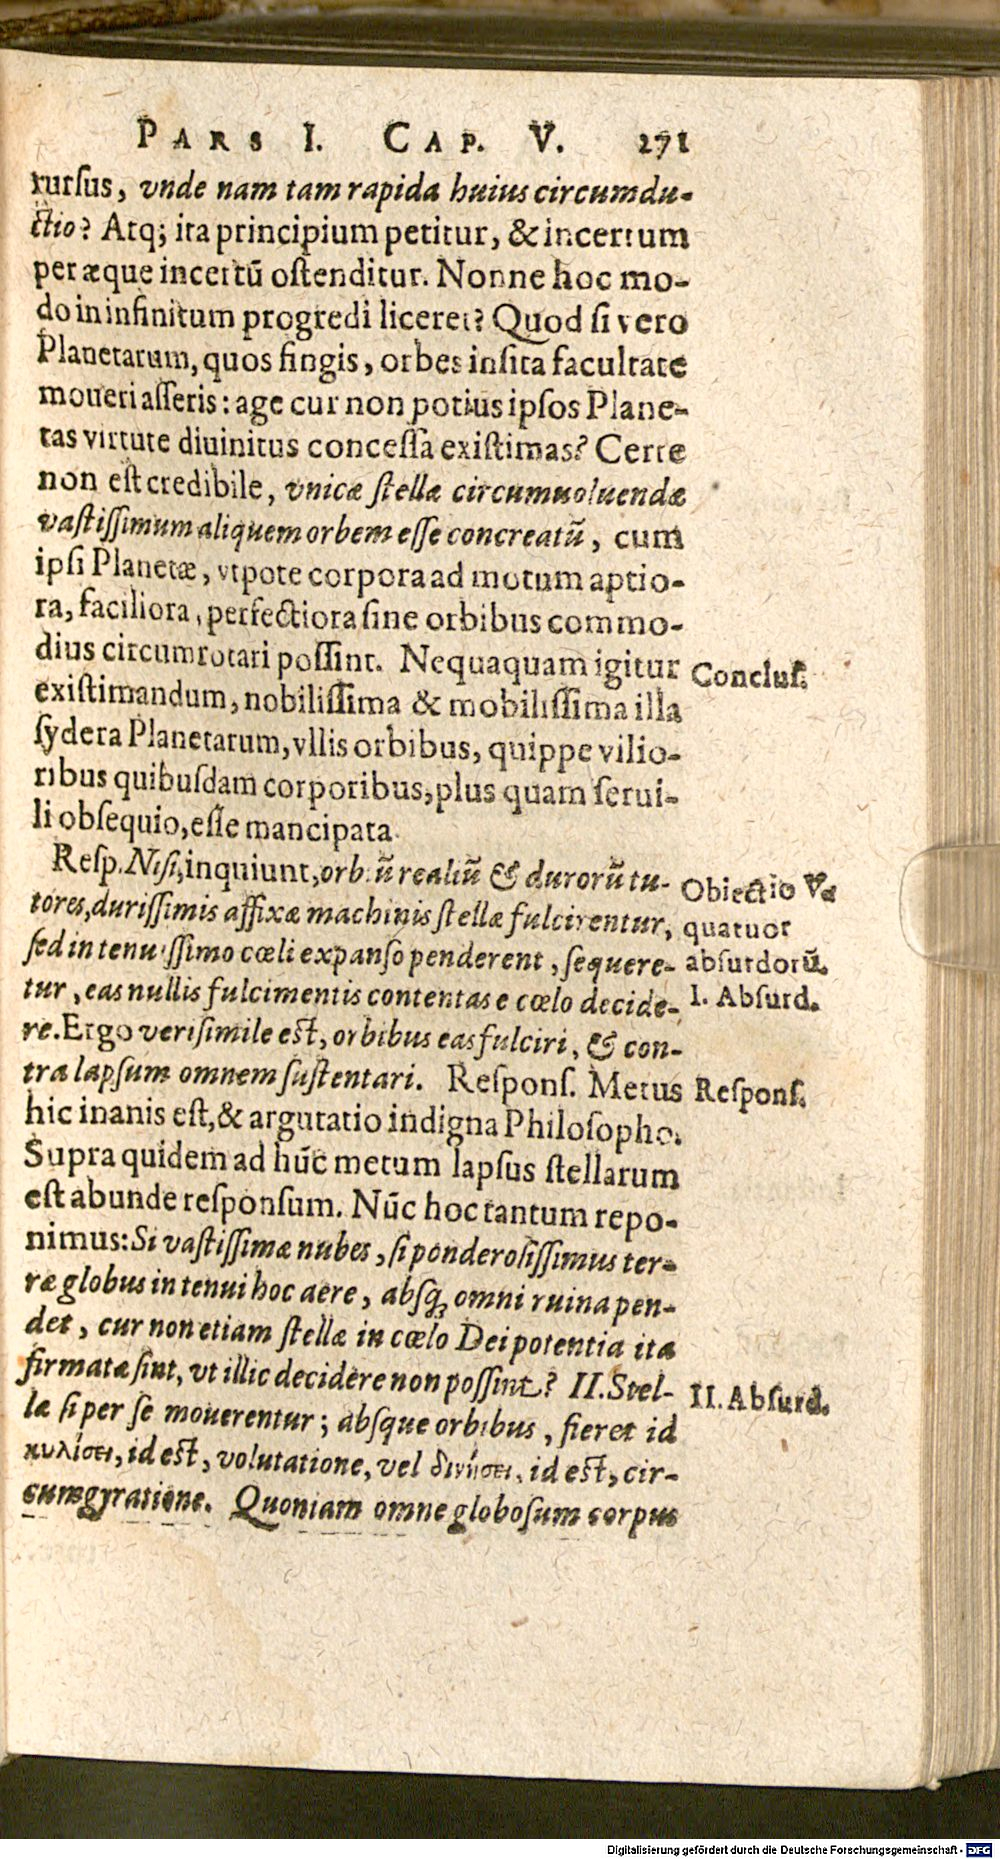 PARS I. CAP. V. 271
rursus, vnde nam tam rapida huius circumdu-
ctio? Atq; ita principium petitur, & incertum
per æque incertũ ostenditur. Nonne hoc mo-
do in infinitum progredi liceret? Quod si vero
Planetarum, quos fingis, orbes insita facultate
moueri asseris: age cur non potius ipsos Plane-
tas virtute diuinitus concessa existimas? Certe
non est credibile, vnicæ stellæ circumuoluendæ
vastissimum aliquem orbem esse concreatũ, cum
ipsi Planetæ, vtpote corpora ad motum aptio-
ra, faciliora, perfectiora sine orbibus commo-
dius circumrotari possint. Nequaquam igitur
Conclus.
existimandum, nobilissima & mobilissima illa
sydera Planetarum, vllis orbibus, quippe vilio-
ribus quibusdam corporibus, plus quam serui-
li obsequio, esse mancipata.
Resp. Nisi, inquiunt, orbiũ realiũ & durorũ tu-
Obiectio Va
tores, durissimis affixæ machinis stellæ fulcirentur,
quatuor
sed in tenuissimo cœli expanso penderent, seque­re-
absurdorũ.
tur, eas nullis fulcimentis contentas e cœlo decide-
I. Absurd.
re. Ergo verisimile est, orbibus eas fulciri, & con-
tra lapsum omnem sustentari. Respons. Metus
Respons.
hic inanis est, & argutatio indigna Philosopho.
Supra quidem ad hũc metum lapsus stellarum
est abunde responsum. Nũc hoc tantum repo-
nimus: Si vastissimæ nubes, si ponderosissimus ter-
ræ globus in tenui hoc aere, absq; omni ruina pen-
det, cur non etiam stellæ in cœlo Dei potentia ita
firmatæ sint, vt illic decidere non possint? II. Stel-
II. Absurd.
læ si per se mouerentur; absque orbibus, fieret id
κυλίσει, id est, volutatione, vel δινήσει, id est, cir-
cumgyratione. Quoniam omne globosum corpus
Digitalisierung gefördert durch die Deutsche Forschungsgemeinschaft - DFG